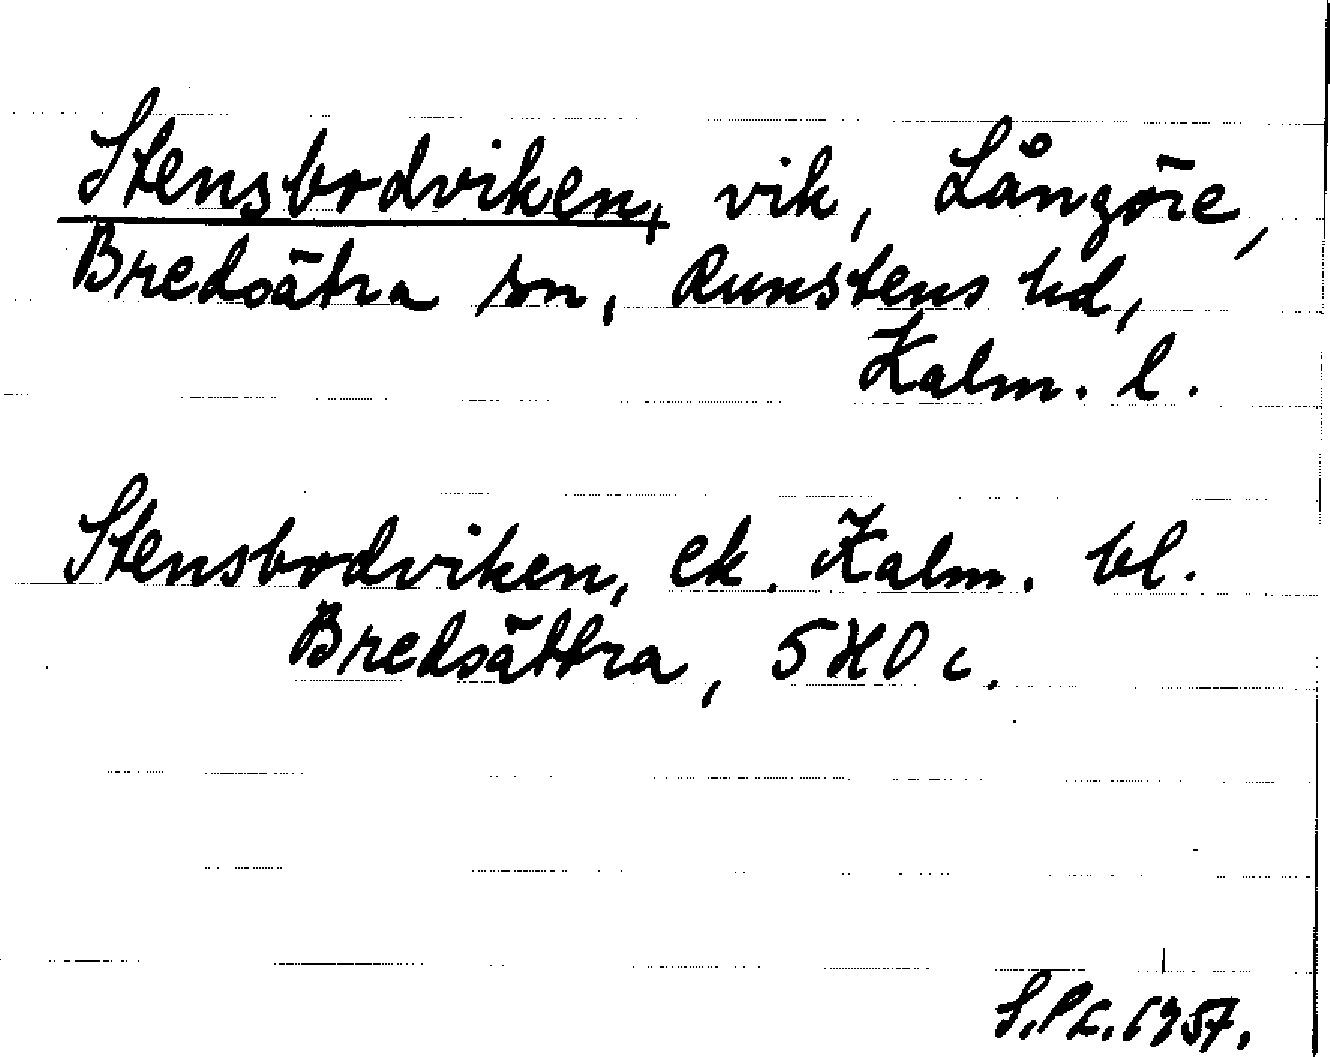 Stensbodviken, vik, Långöre,
Bredsätra sn, Runstens hd,
Kalm. l.
Stensbodviken, ek. Kalm. bl.
Bredsättra, 5H0c.
1957.